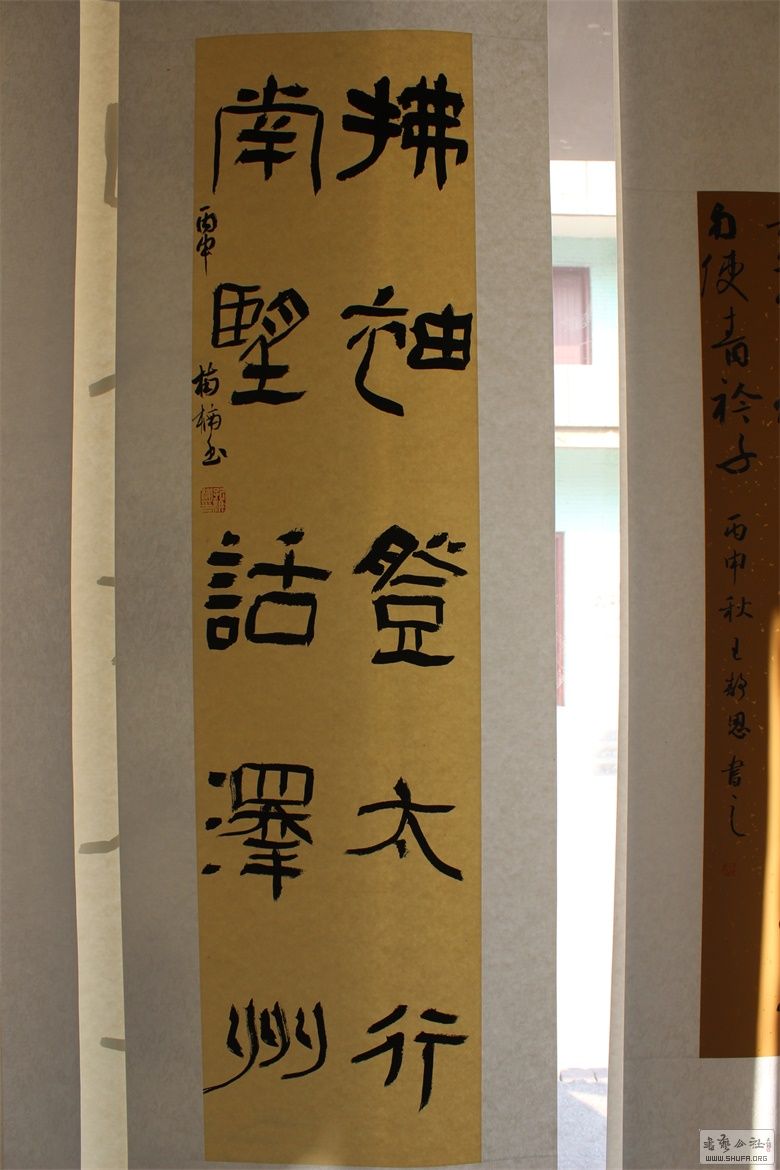 拂袖登太行
南望話澤州
丙申
楠書
自使青衿子
丙申秋王静思書之
書藝公社
WWW.SHUFA.ORG